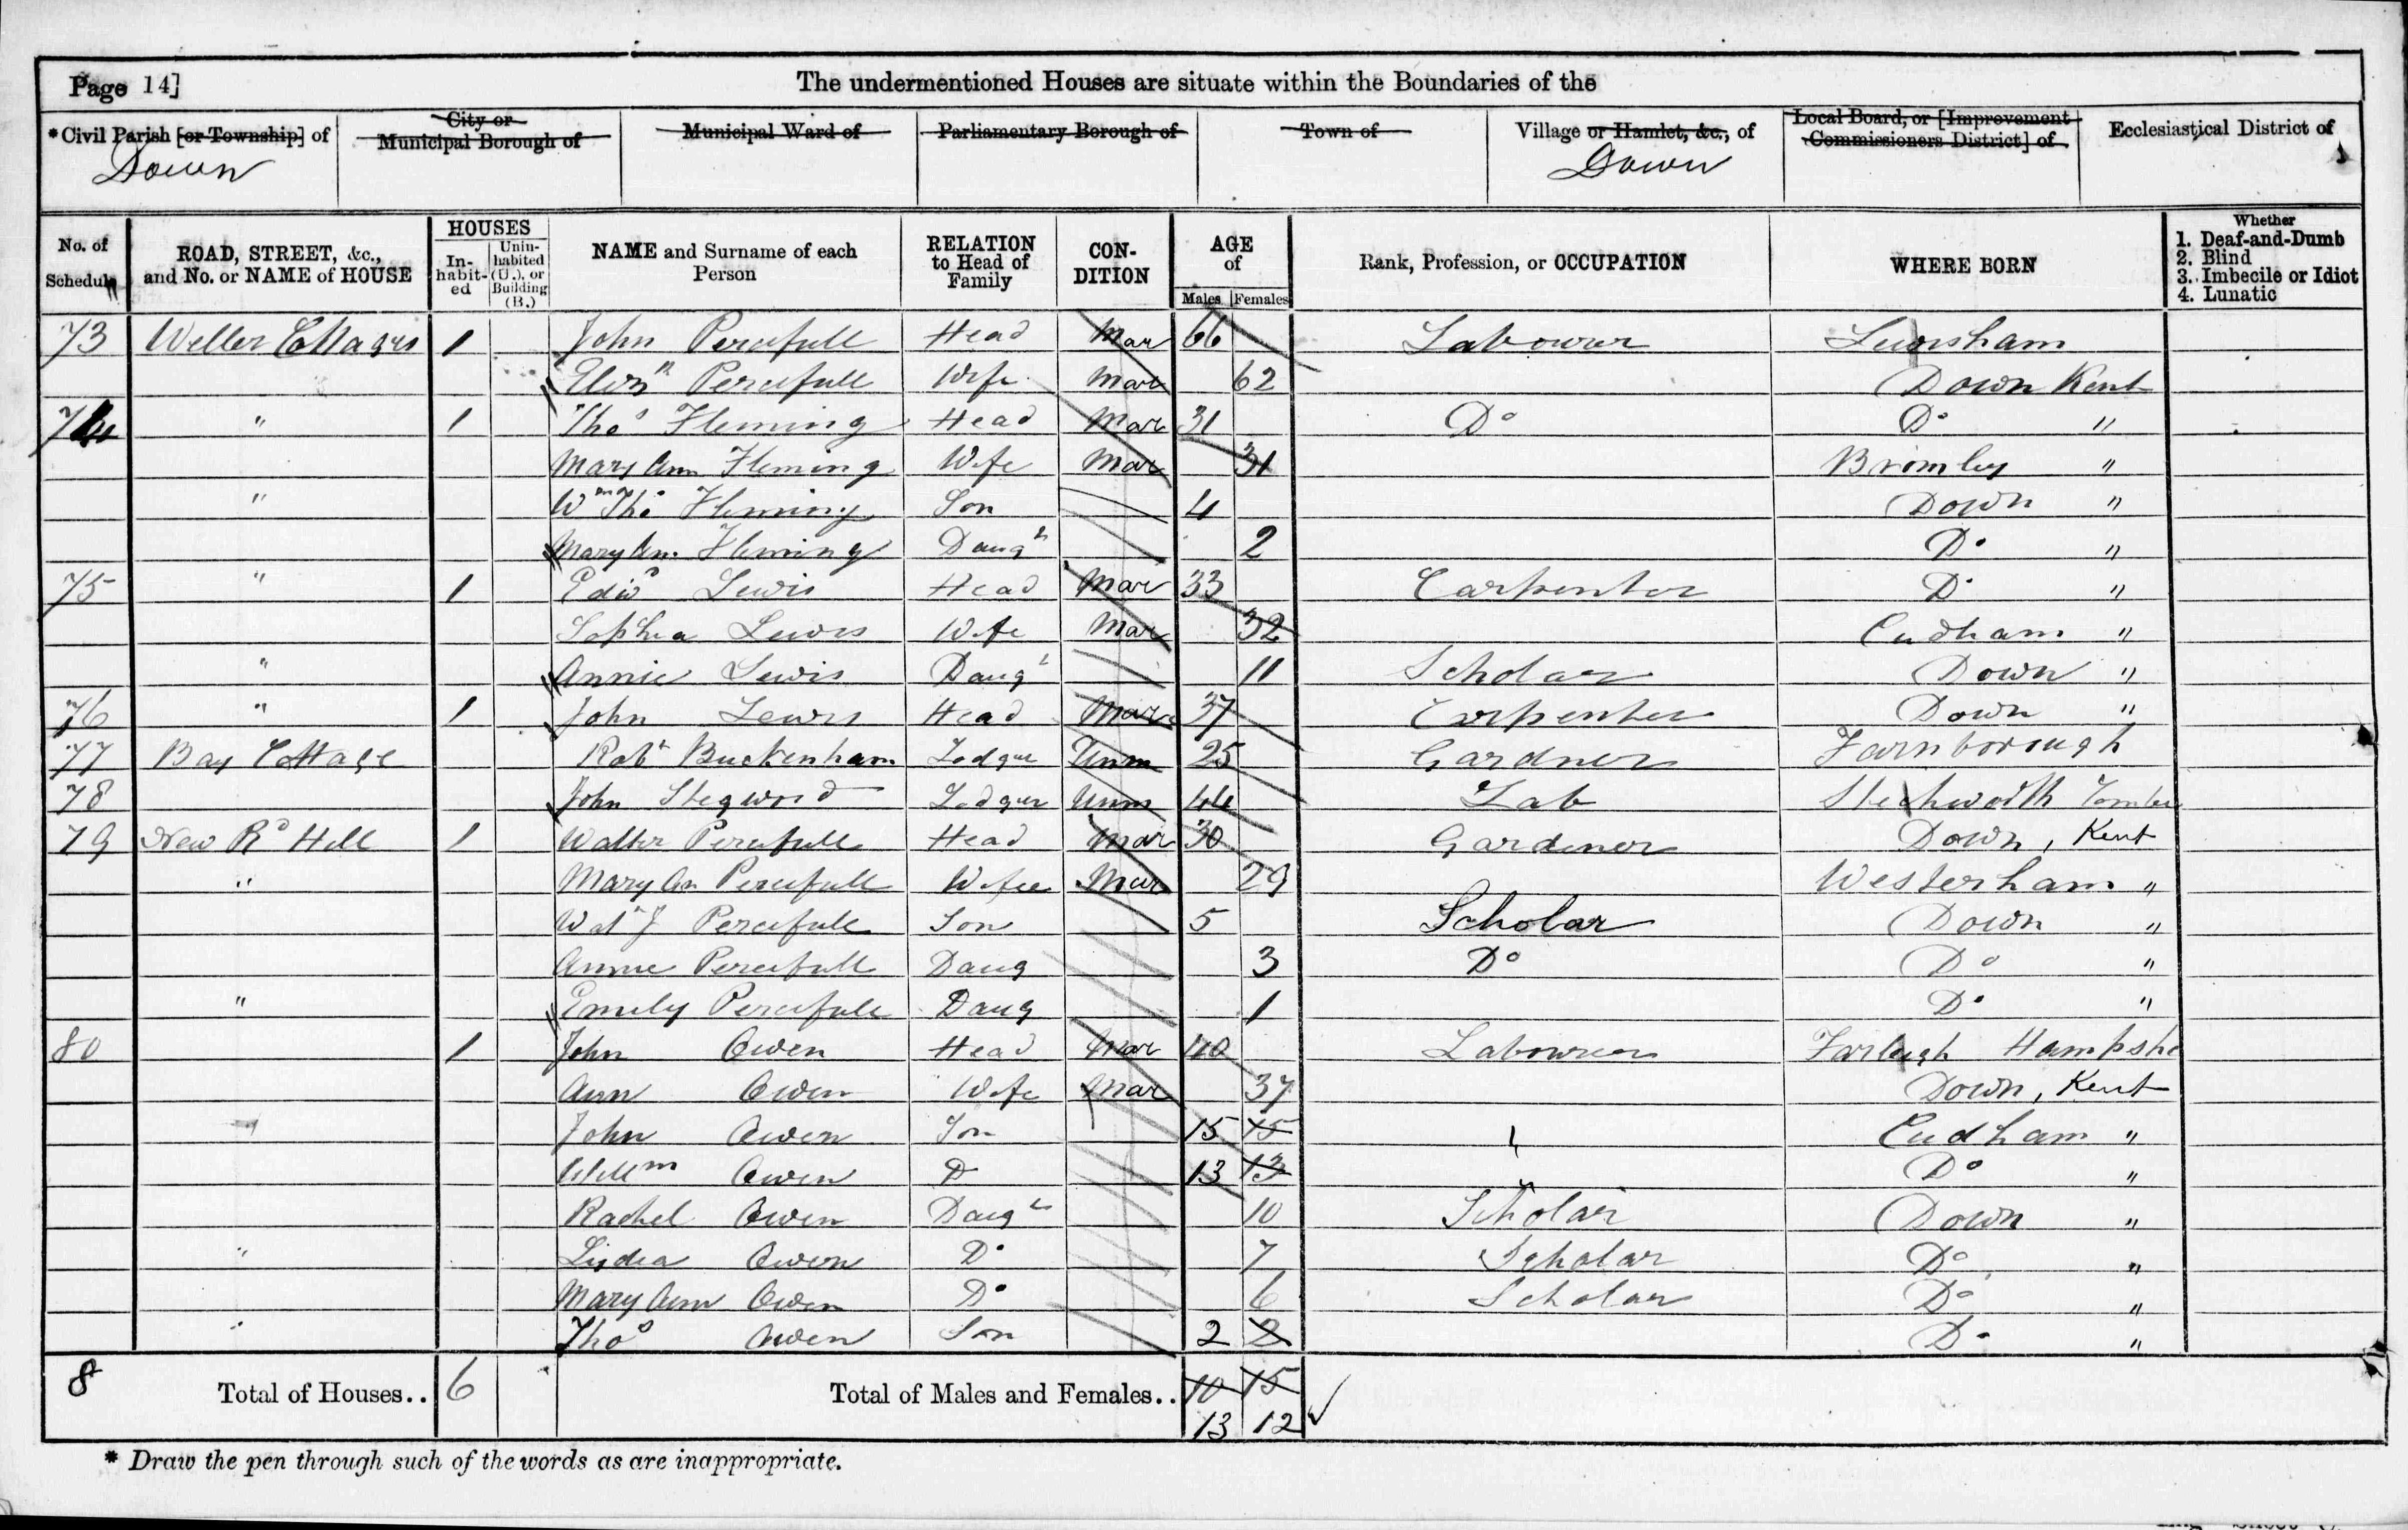 Page 14] The undermentioned Houses are situate within the Boundaries of the
*Civil Parish [or Township] of City or Municipal Borough of Municipal Ward of Parliamentary Borough of Town of Village or Hamlet, &c., of Local Board, or [Improvement Commissioners District] of Ecclesiastical District of
Down Down
No. of Schedule ROAD, STREET, &c., and No. or NAME of HOUSE HOUSES In-habit-ed Unin-habited (U.), or Building (B.) NAME and Surname of each Person RELATION to Head of Family CON-DITION AGE of Males Females Rank, Profession, or OCCUPATION WHERE BORN Whether 1. Deaf-and-Dumb 2. Blind 3. Imbecile or Idiot 4. Lunatic
73 Weller Cottages 1 John Percefull Head Mar 66 Labourer Lewisham
Elizth Percefull Wife Mar 62 Down Kent
74 " 1 Thos Fleming Head Mar 31 Do Do "
Mary Ann Fleming Wife Mar 31 Bromley "
" Wm Thos Fleming Son 4 Down "
Mary An. Fleming Daugr 2 Do "
75 " 1 Edwd Lewis Head Mar 33 Carpenter Do "
Sophia Lewis Wife Mar 32 Cudham "
" Annie Lewis Daugr 11 Scholar Down "
76 " 1 John Lewis Head Mar 37 Carpenter Down "
77 Bay Cottage Robt Buckenham Lodger Unm 25 Gardner Farnborough
78 John Stegword Lodger Unm 44 Lab
79 New Rd Hill 1 Walter Percefull Head Mar 30 Gardener Down, Kent
" Mary An Percefull Wife Mar 29 Westerham "
Walr J Percefull Son 5 Scholar Down "
Annie Percefull Daug 3 Do Do "
" Emily Percefull Daug 1 Do "
80 1 John Owen Head Mar 40 Labourer Farleigh Hampshe
Ann Owen Wife Mar 37 Down, Kent
" John Owen Son 15 15 Cudham "
Willm Owen D 13 13 Do "
Rachel Owen Daugr 10 Scholar Down "
" Lydia Owen Do 7 Scholar Do "
Mary Ann Owen Do 6 Scholar Do "
" Thos Owen Son 2 2 Do "
8 Total of Houses.. 6 Total of Males and Females.. 10 15
13 12
* Draw the pen through such of the words as are inappropriate.